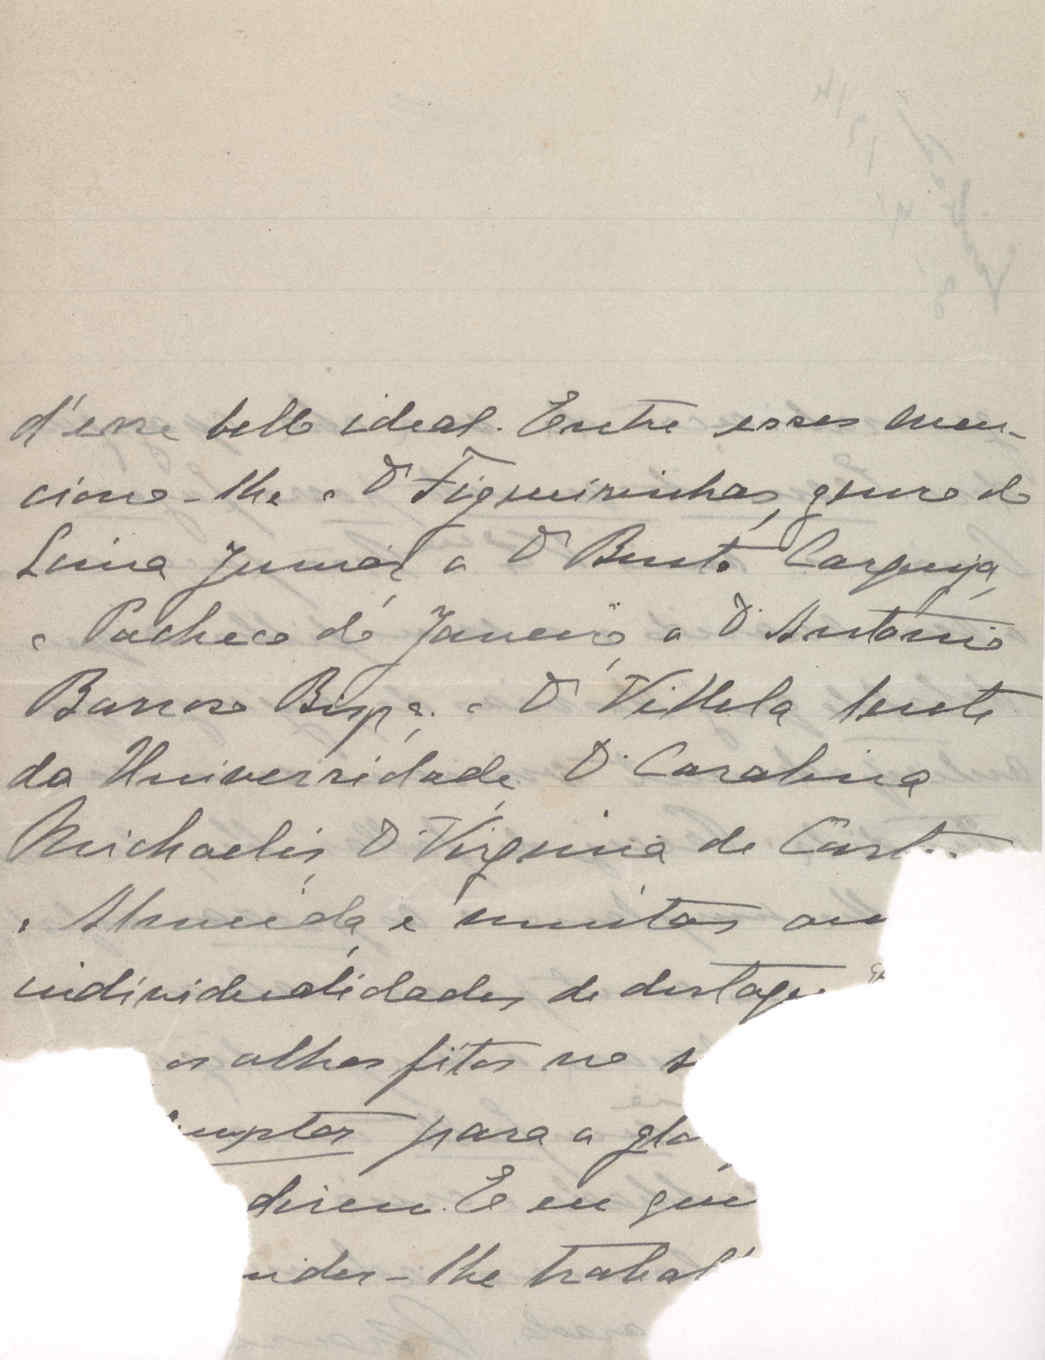 d'esse bello ideal. Entre esses men-
ciono-lhe o Dr Figueirinhas, genro do
Lima Junior, o Dr Bento Carqueja,
o Pacheco do Janeiro, o Dr. Antonio
Barroso Bispo, o Dr Villela lente
da Universidade, D. Carolina
Michaelis, D. Virginia de Castro
e Almeida, e muitas ou
individualidades de destaque
os olhos fitos no s
umptos para a glo
direm. E eu que
nder-lhe trabal